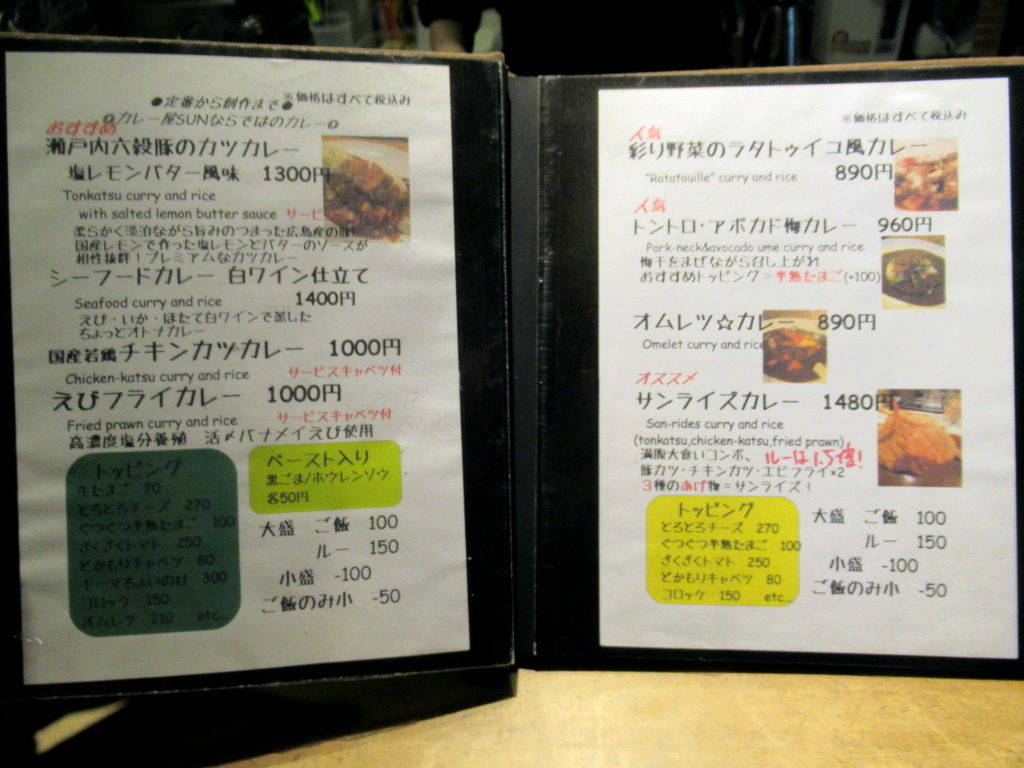 ●定番から創作まで●
※価格はすべて税込み
カレー屋SUNならではのカレー
おすすめ
瀬戸内六穀豚のカツカレー
塩レモンバター風味 1300円
Tonkatsu curry and rice
with salted lemon butter sauce サービ
柔らかく淡泊ながら旨みのつまった広島産の豚に
国産レモンで作った塩レモンとバターのソースが
相性抜群!プレミアムなカツカレー
シーフードカレー 白ワイン仕立て
Seafood curry and rice 1400円
えび・いか・ほたて白ワインで蒸した
ちょっとオトナカレー
国産若鶏チキンカツカレー 1000円
Chicken-katsu curry and rice サービスキャベツ付
えびフライカレー 1000円
Fried prawn curry and rice サービスキャベツ付
高濃度塩分養殖 活〆バナメイえび使用
トッピング
生たまご 70
とろとろチーズ 270
ぐつぐつ半熟たまご 100
ざくざくトマト 250
とかもりキャベツ 80
キーマちょいのせ 300
コロッケ 150
オムレツ 210 etc...
ペースト入り
黒ごま/ホウレンソウ
各50円
大盛 ご飯 100
ルー 150
小盛 -100
ご飯のみ小 -50
※価格はすべて税込み
人気
彩り野菜のラタトゥイユ風カレー
"Ratatouille" curry and rice 890円
人気
トントロ・アボカド梅カレー 960円
Pork-neck&avocado ume curry and rice
梅干をまぜながら召し上がれ
おすすめトッピング=半熟たまご(+100)
オムレツ☆カレー 890円
Omelet curry and rice
オススメ
サンライズカレー 1480円
San-rides curry and rice
(tonkatsu,chicken-katsu,fried prawn)
満腹大食いコンボ、ルーは1.5倍!
豚カツ・チキンカツ・エビフライ×2
3種のあげ物=サンライズ!
トッピング
とろとろチーズ 270
ぐつぐつ半熟たまご 100
ざくざくトマト 250
とかもりキャベツ 80
コロッケ 150 etc...
大盛 ご飯 100
ルー 150
小盛 -100
ご飯のみ小 -50